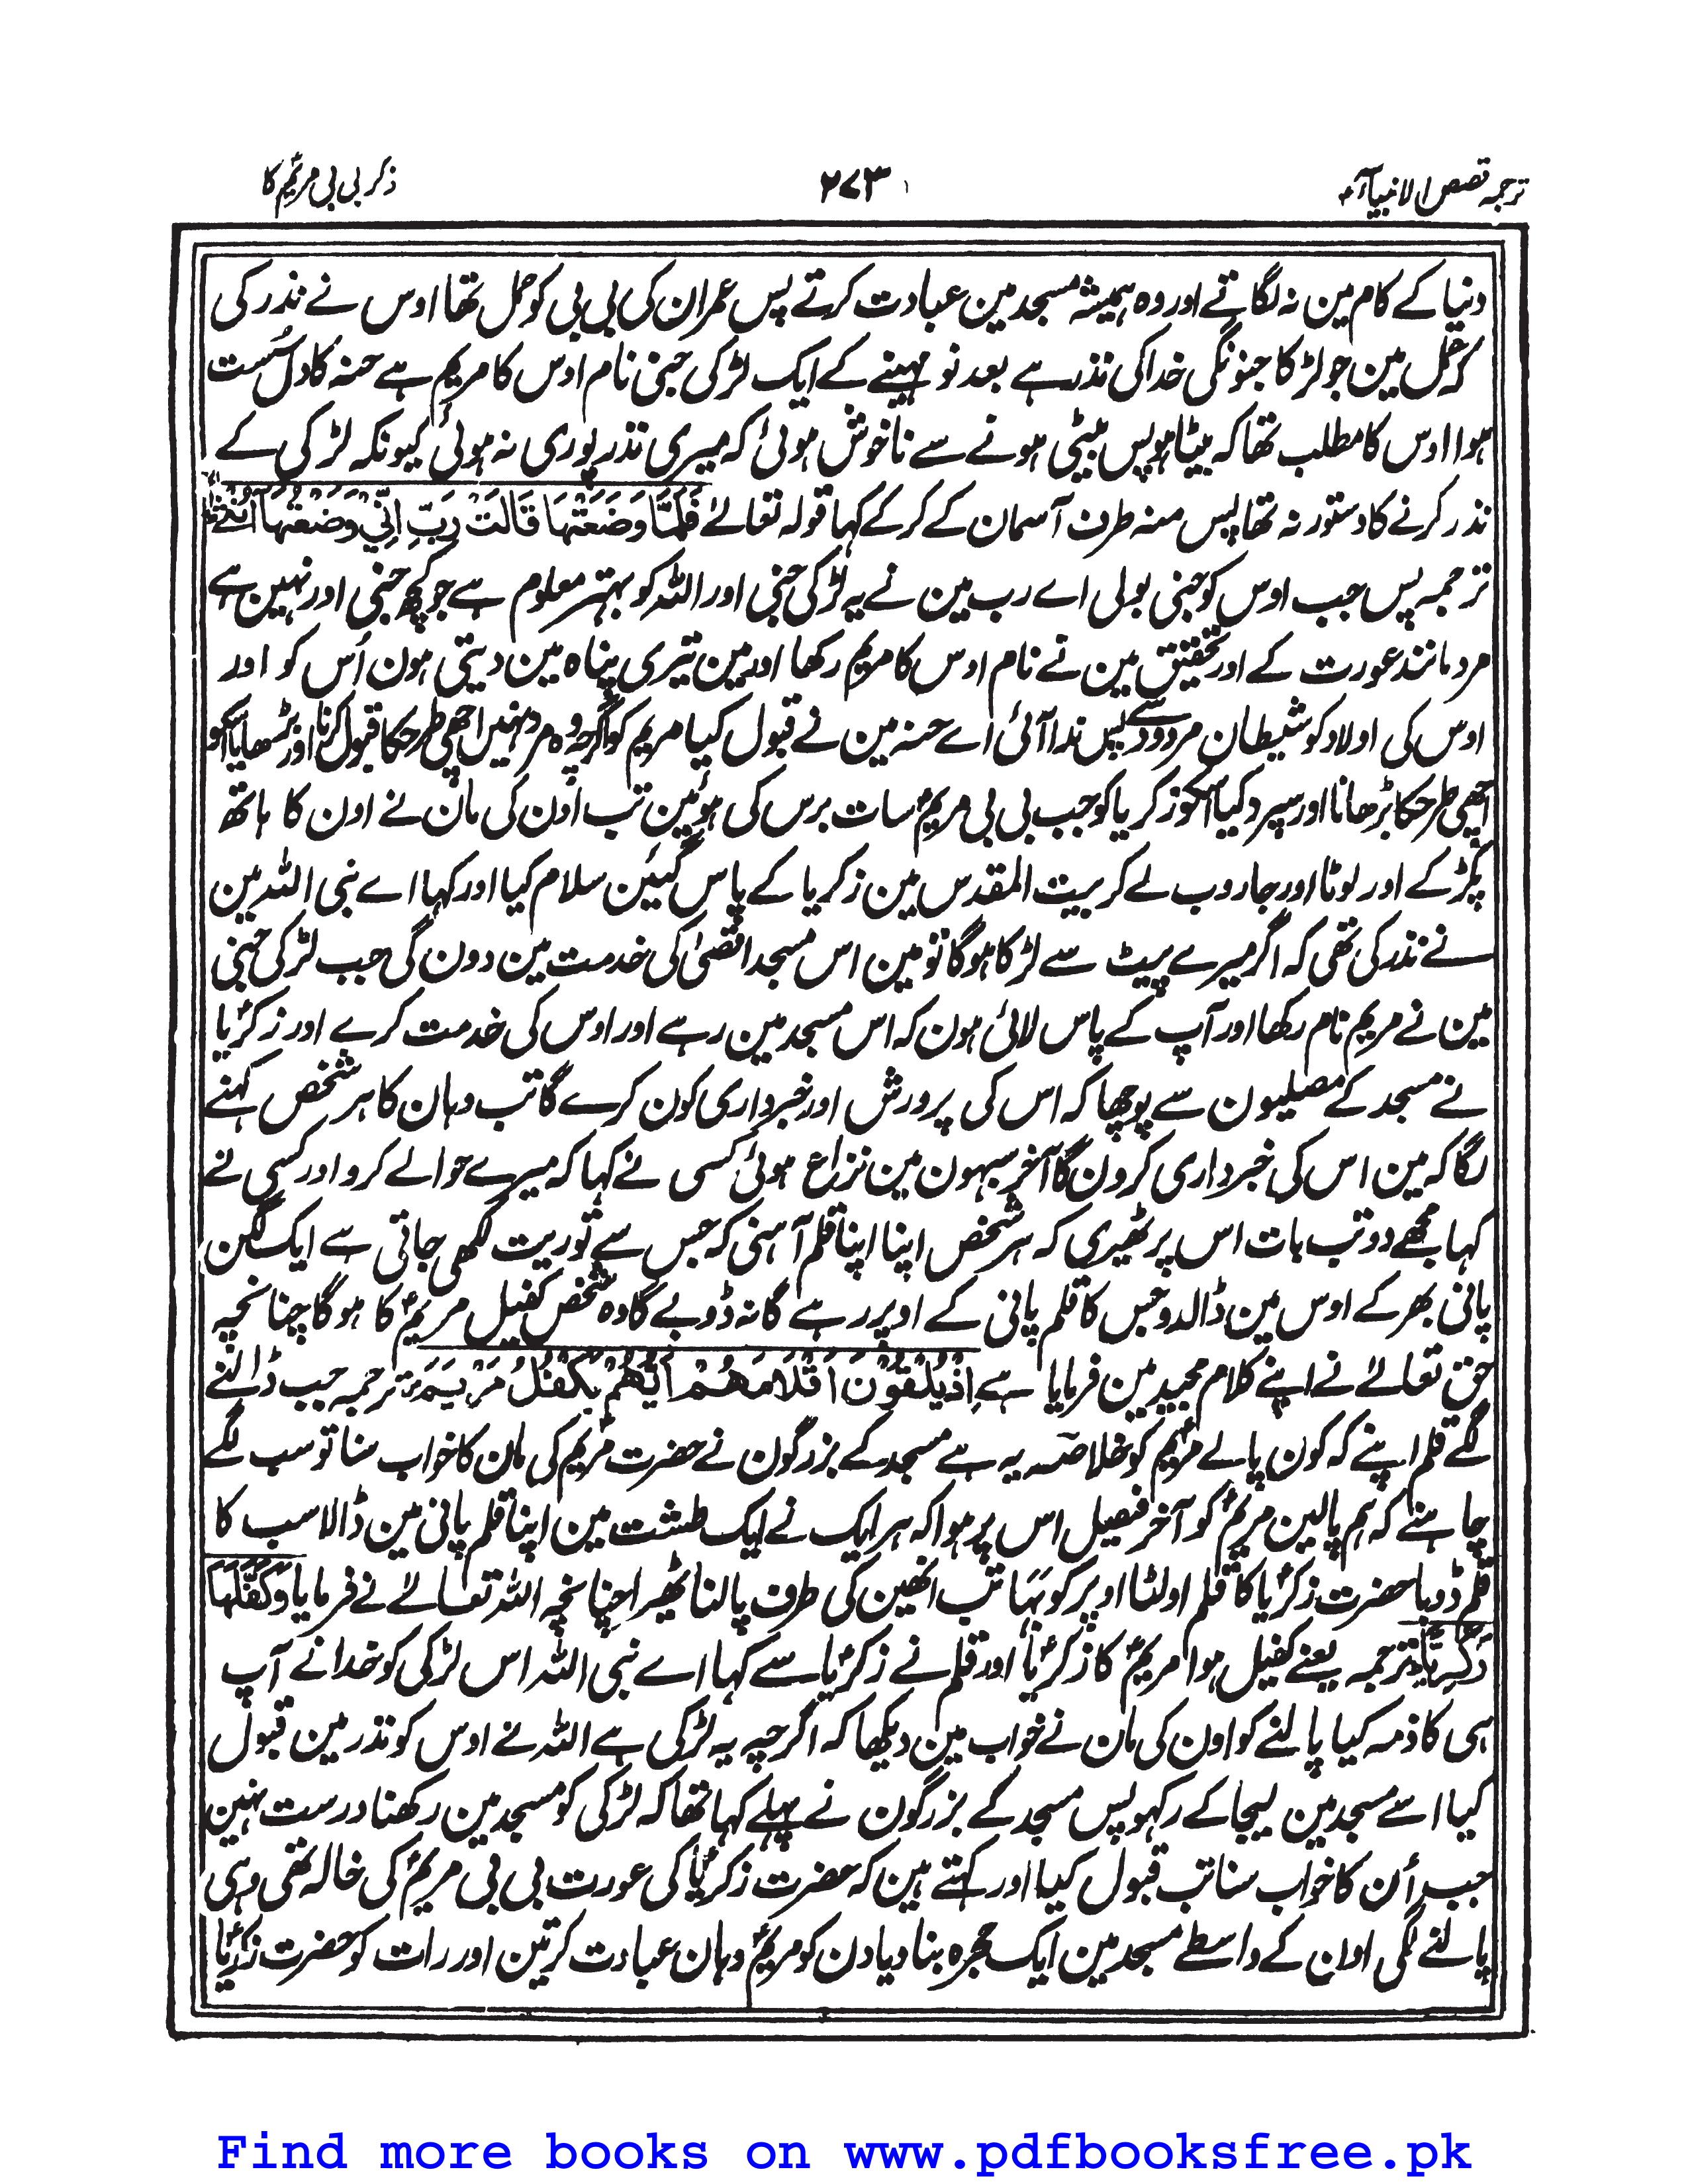 ترجمہ قصص الانبیاء
۲۷۳
ذکر بی بی مریم کا
دنیا کے کام مین نہ لگاتے اور وہ ہمیشہ مسجد مین عبادت کرتے پس عمران کی بی بی کو حمل تھا اوس نے نذر کی
کہ حمل مین جو لڑکا جنونگی خدا کی نذر ہے بعد نو مہینے کے ایک لڑکی جنی نام اوس کا مریم ہے حنہ کا دل سُست
ہوا اوس کا مطلب تھا کہ بیٹا ہو پس بیٹی ہونے سے ناخوش ہوئی کہ میری نذر پوری نہ ہوئی کیونکہ لڑکی کے
نذر کرنے کا دستور نہ تھا پس منہ طرف آسمان کے کر کے کہا قولہ تعالےٰ فَلَمَّا وَضَعَتْهَا قَالَتْ رَبِّ اِنِّیْ وَضَعْتُهَا اُنْثٰی
ترجمہ پس جب اوس کو جنی بولی اے رب مین نے یہ لڑکی جنی اور اللہ کو بہتر معلوم ہے جو کچھ جنی اور نہین ہے
مرد مانند عورت کے اور تحقیق مین نے نام اوس کا مریم رکھا اور مین تیری پناہ مین دیتی ہون اُس کو اور
اوس کی اولاد کو شیطان مردود سے پس ندا آئی اے حنہ مین نے قبول کیا مریم کو اگرچہ وہ مرد نہیں اچھی طرحکا قبول کرنا اور بڑھایا اسکو
اچھی طرحکا بڑھانا اور سپرد کیا اسکو زکریا کو جب بی بی مریمؑ سات برس کی ہوئین تب اون کی مان نے اون کا ہاتھ
پکڑ کے اور لوٹا اور جاروب لے کر بیت المقدس مین زکریا کے پاس گئین سلام کیا اور کہا اے نبی اللہ مین
نے نذر کی تھی کہ اگر میرے پیٹ سے لڑکا ہوگا تو مین اس مسجد اقصیٰ کی خدمت مین دون گی جب لڑکی جنی
مین نے مریم نام رکھا اور آپ کے پاس لائی ہون کہ اس مسجد مین رہے اور اوس کی خدمت کرے اور زکریاؑ
نے مسجد کے مصلیون سے پوچھا کہ اس کی پرورش اور خبرداری کون کرے گا تب وہان کا ہر شخص کہنے
لگا کہ مین اس کی خبرداری کرون گا آخر سبہون مین نزاع ہوئی کسی نے کہا کہ میرے حوالے کرو اور کسی نے
کہا مجھے دو تب بات اس پر ٹھیری کہ ہر شخص اپنا اپنا قلم آہنی کہ جس سے توریت لکھی جاتی ہے ایک لگن
پانی بھر کے اوس مین ڈالدو جس کا قلم پانی کے اوپر رہے گا نہ ڈوبے گا وہ شخص کفیل مریمؑ کا ہوگا چنانچہ
حق تعالےٰ نے اپنے کلام مجید مین فرمایا ہے اِذْ یُلْقُوْنَ اَقْلَامَهُمْ اَیُّهُمْ یَكْفُلُ مَرْیَمَ ترجمہ جب ڈالنے
لگے قلم اپنے کہ کون پالے مریمؑ کو خلاصہ یہ ہے مسجد کے بزرگون نے حضرت مریمؑ کی مان کا خواب سنا تو سب لگے
چاہنے کہ ہم پالین مریمؑ کو آخر فیصل اس پر ہوا کہ ہر ایک نے ایک طشت مین اپنا قلم پانی مین ڈالا سب کا
قلم ڈوبا حضرت زکریاؑ کا قلم اولٹا اوپر کو بہا تب انھین کی طرف پالنا ٹھیرا چنانچہ اللہ تعالےٰ نے فرمایا وَكَفَّلَهَا
زَكَرِیَّا ترجمہ یعنے کفیل ہوا مریمؑ کا زکریاؑ اور قلم نے زکریاؑ سے کہا اے نبی اللہ اس لڑکی کو خدا نے آپ
ہی کا ذمہ کیا پالنے کو اون کی مان نے خواب مین دیکھا کہ اگرچہ یہ لڑکی ہے اللہ نے اوس کو نذر مین قبول
کیا اسے مسجد مین لیجا کے رکہو پس مسجد کے بزرگون نے پہلے کہا تھا کہ لڑکی کو مسجد مین رکھنا درست نہین
جب اُن کا خواب سنا تب قبول کیا اور کہتے ہین کہ حضرت زکریاؑ کی عورت بی بی مریمؑ کی خالہ تھی وہی
پالنے لگی اون کے واسطے مسجد مین ایک حجرہ بنا دیا دن کو مریمؑ وہان عبادت کرتین اور رات کو حضرت زکریاؑ
Find more books on www.pdfbooksfree.pk